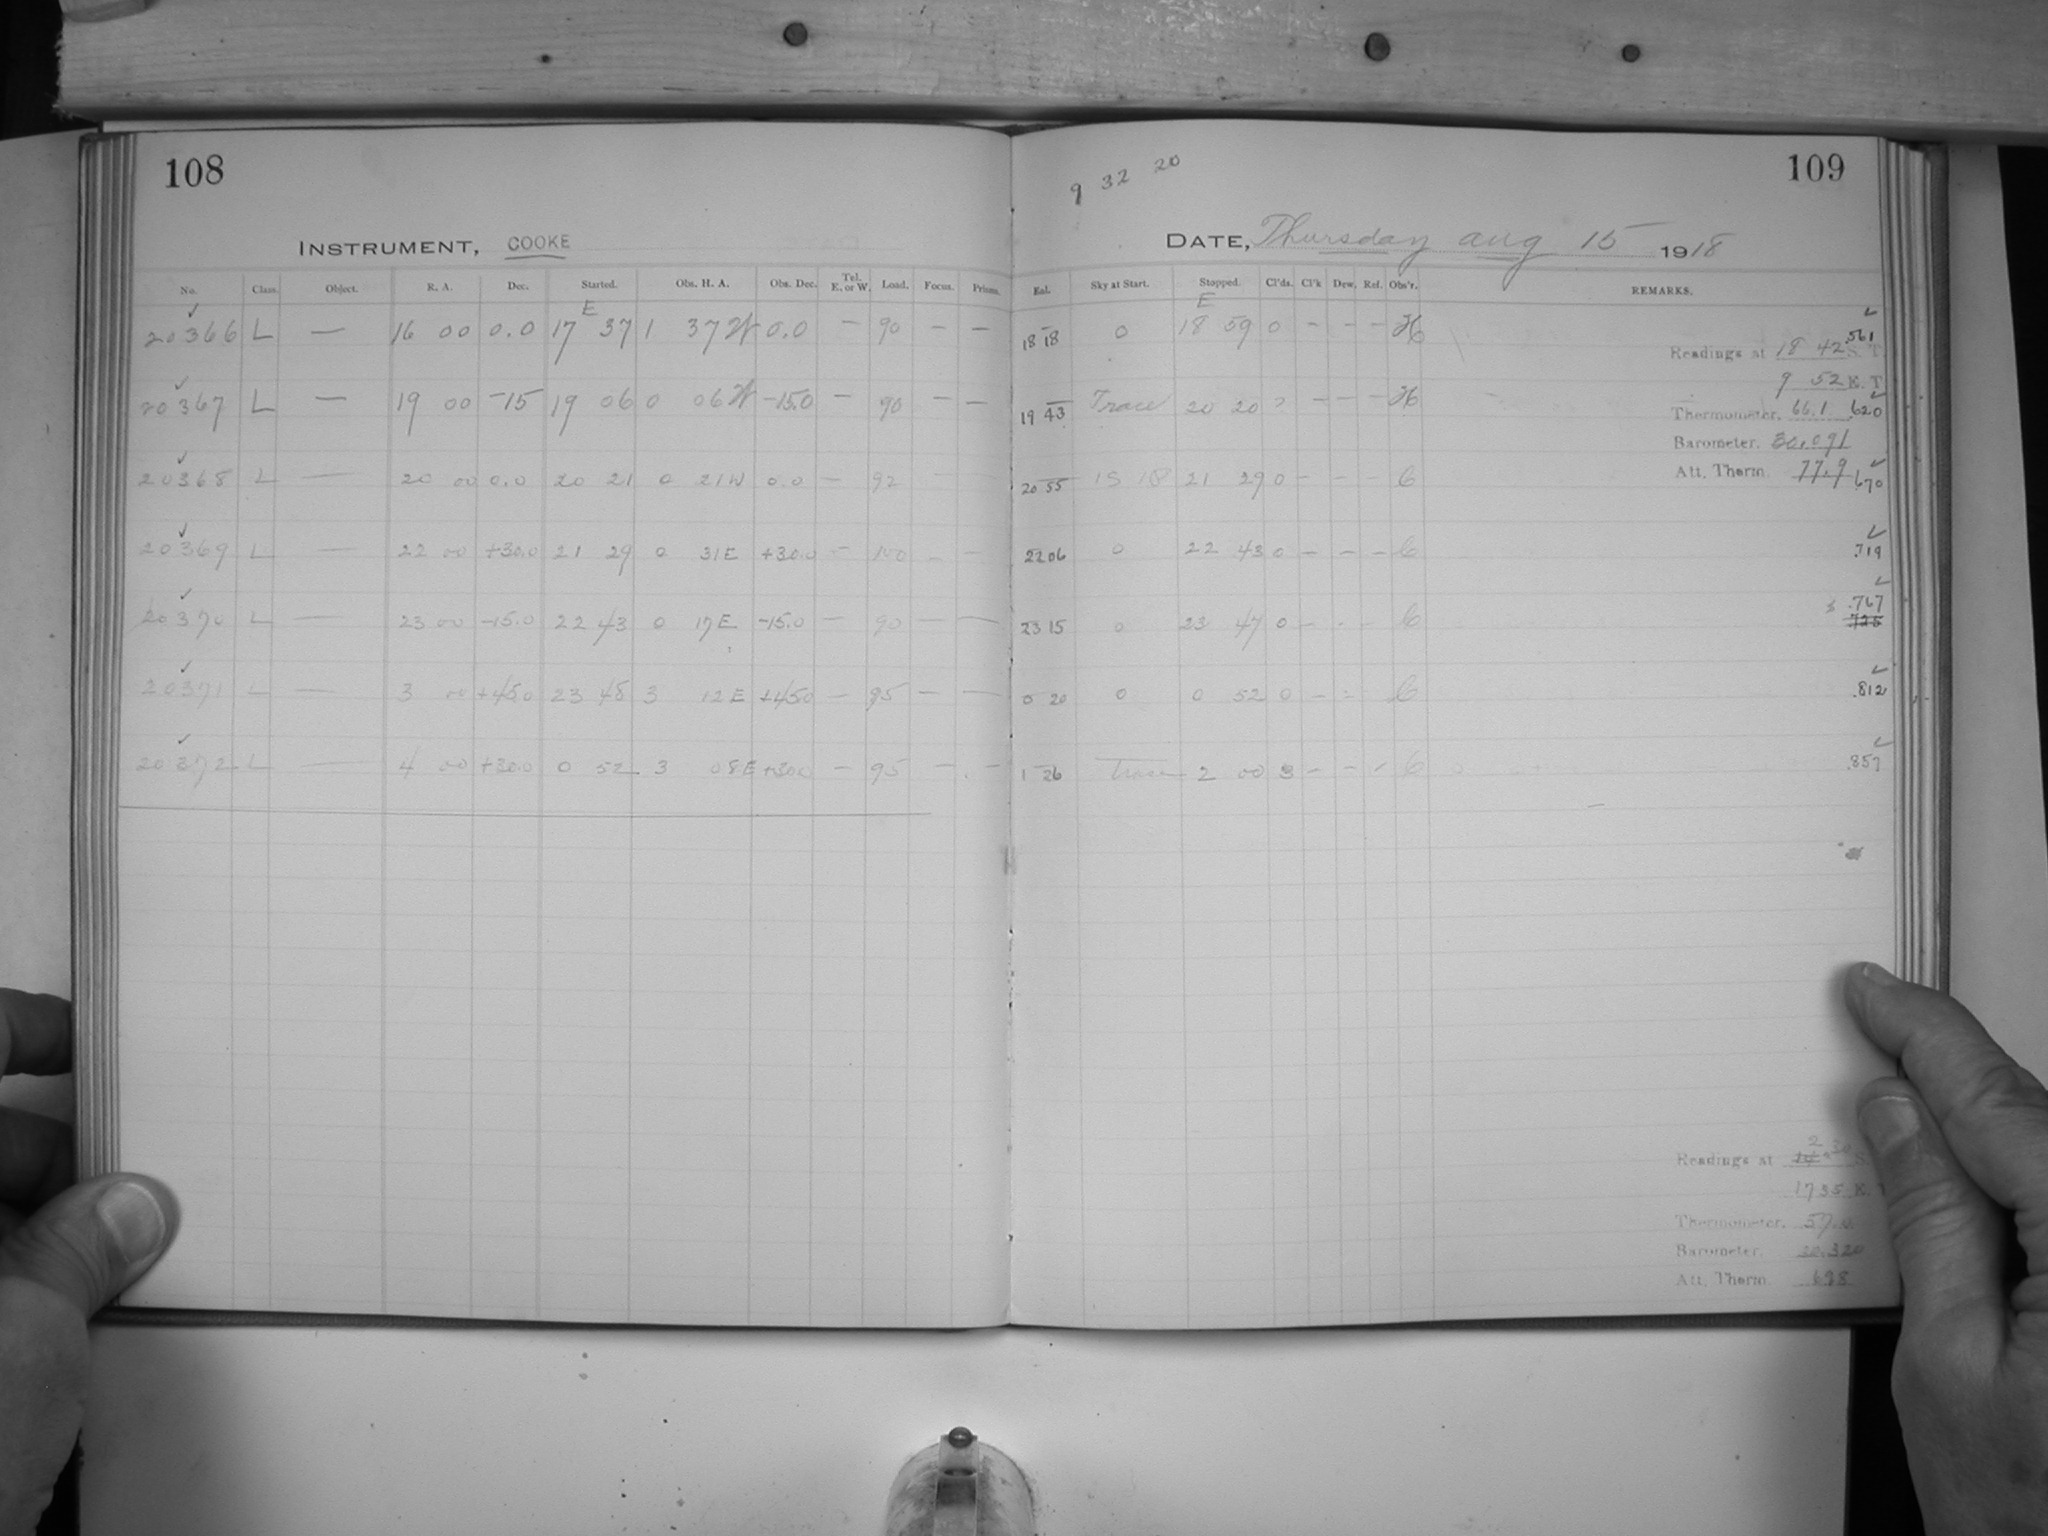 108
INSTRUMENT, COOKE
No. Class. Object. R. A. Dec. Started. Obs. H. A. Obs. Dec. Tel. E. or W. Load. Focus. Prisms.
E
20366 L — 16 00 0.0 17 37 1 37 W 0.0 — 90 — —
20367 L — 19 00 -15 19 06 0 06 W -15.0 — 90 — —
20368 L — 20 00 0.0 20 21 0 21 W 0.0 — 92
20369 L — 22 00 +30.0 21 29 0 31 E +30.0 — 100 — —
20370 L — 23 00 -15.0 22 43 0 17 E -15.0 — 90 — —
20371 L — 3 00 +45.0 23 48 3 12 E +45.0 — 95 — —
20372 L — 4 00 +30.0 0 52 3 08 E +30.0 — 95 — —
109
9 32 20
DATE, Thursday Aug 15 1918
Eal. Sky at Start. Stopped. Cl'ds. Cl'k Dew. Ref. Obs'r. REMARKS.
E
18 18 0 18 59 0 — — — H .561
Readings at 18 42 S. T.
9 52 E. T
19 43 Trace 20 20 — — — H
Thermometer. 66.1 .620
Barometer. 30.091
Att. Therm. 77.9 .670
20 55 21 29 0 — — — C
22 06 0 22 43 0 — — — C .719
23 15 0 23 47 0 — - — C .767
0 20 0 0 52 0 — - C .812
1 26 Trace 2 00 3 — — - C .857
Readings at 2
1735 E. T
Thermometer. 57.0
Barometer. 30.320
Att. Therm. 698